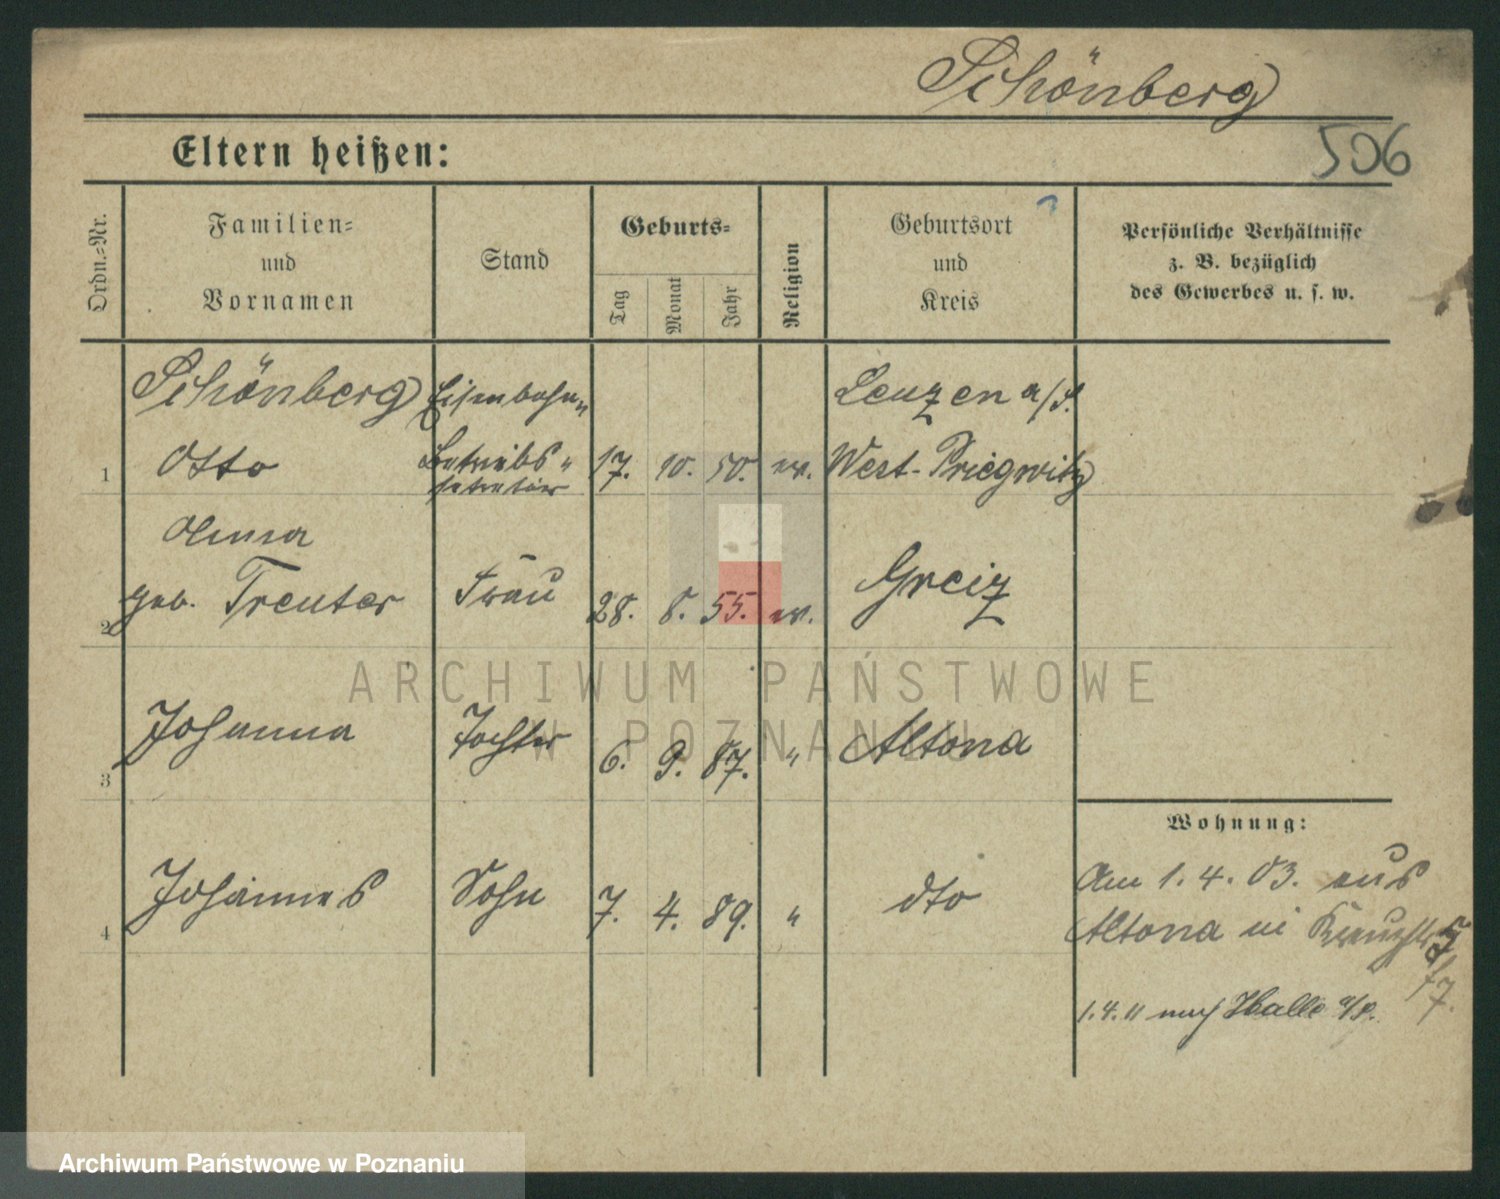 Schönberg
506
Eltern heißen:
Ordn.=Nr.
Familien=
und
Vornamen
Stand
Geburts=
Tag
Monat
Jahr
Religion
Geburtsort
und
Kreis
Persönliche Verhältnisse
z. B. bezüglich
des Gewerbes u. s. w.
Schönberg Eisenbahn
Otto Betriebs=
1 17. 10. 50. ev. West-Priegnitz
sekretär
geb. Treuter Frau Greiz
2 28. 8. 55. ev.
ARCHIWUM PAŃSTWOWE
W POZNANIU
Johanna Tochter Altona
3 6. 9. 87. "
Wohnung:
Johannes Sohn dto
4 7. 4. 89. "
Am 1. 4. 03. aus
Altona in
1.4.11 nach Halle a/S.
Archiwum Państwowe w Poznaniu